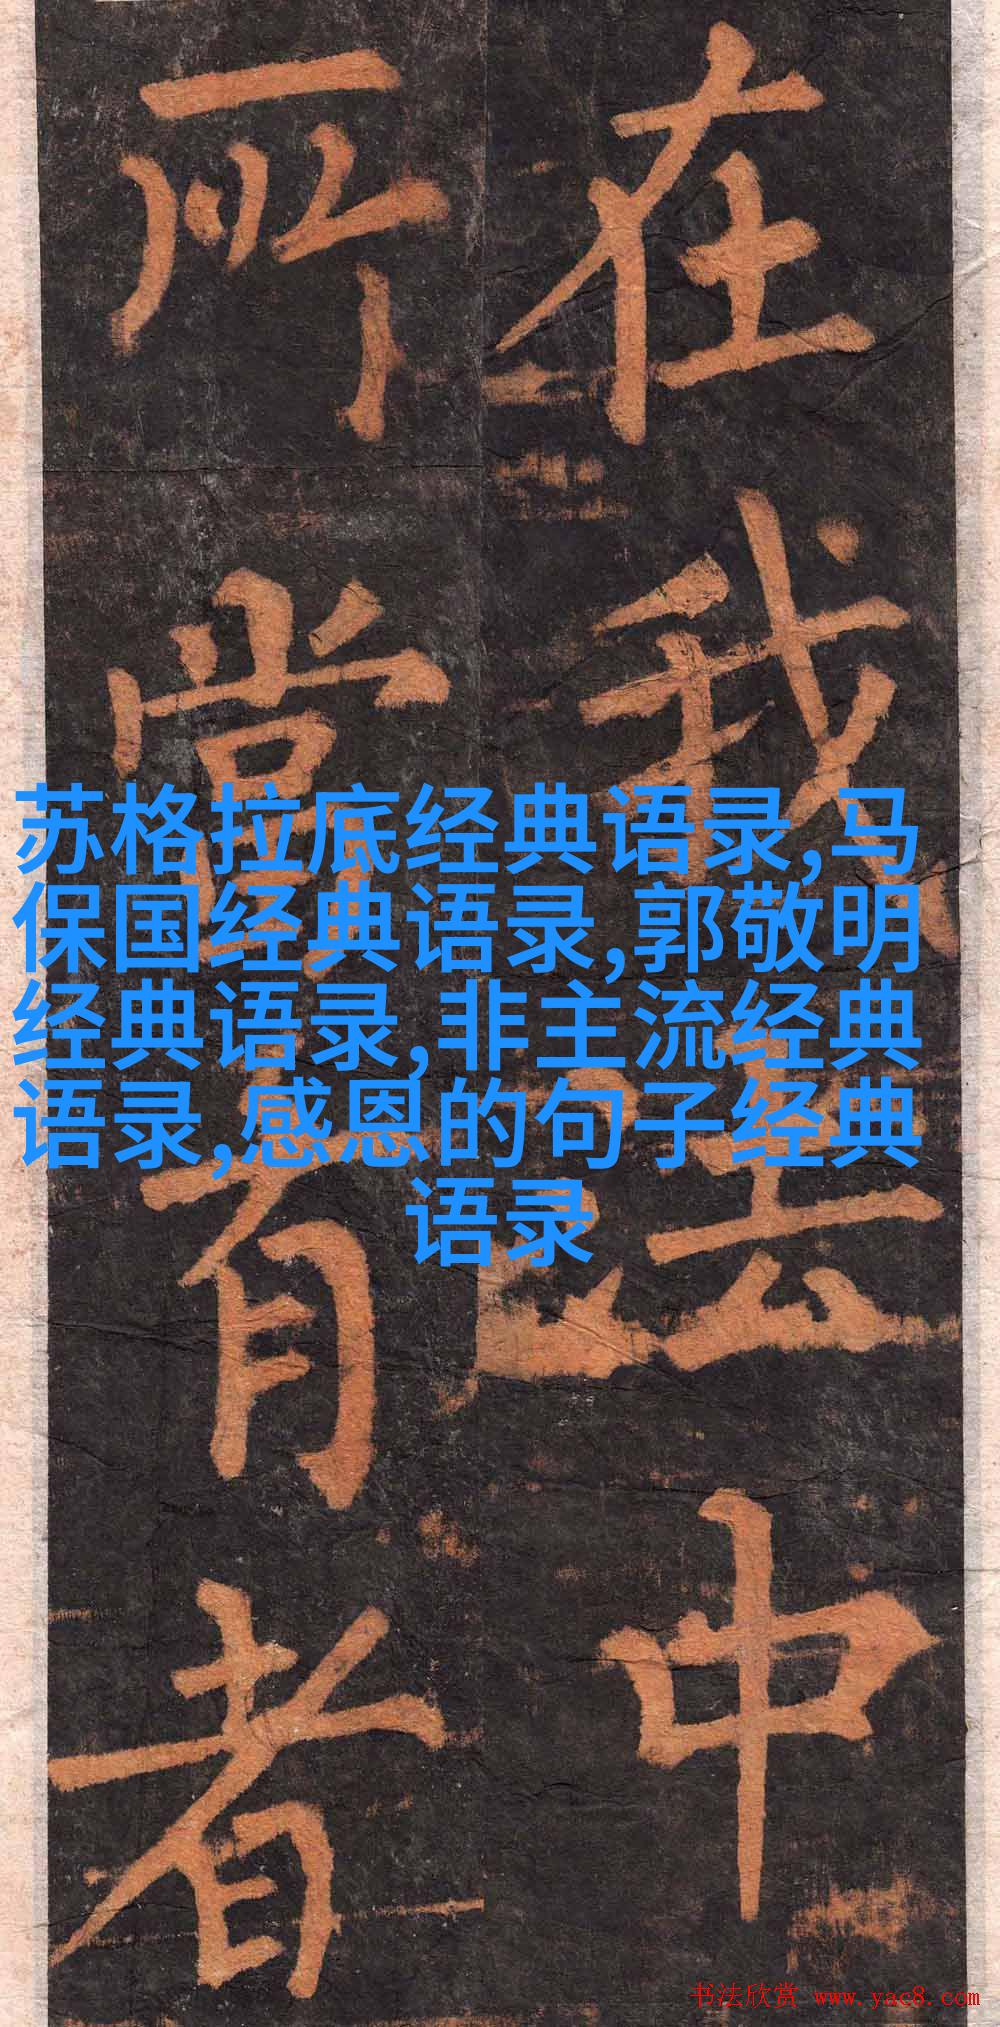 在我法中
所有者
苏格拉底经典语录,马
保国经典语录,郭敬明
经典语录,非主流经典
语录,感恩的句子经典
语录
书法欣赏 www.yac8.com